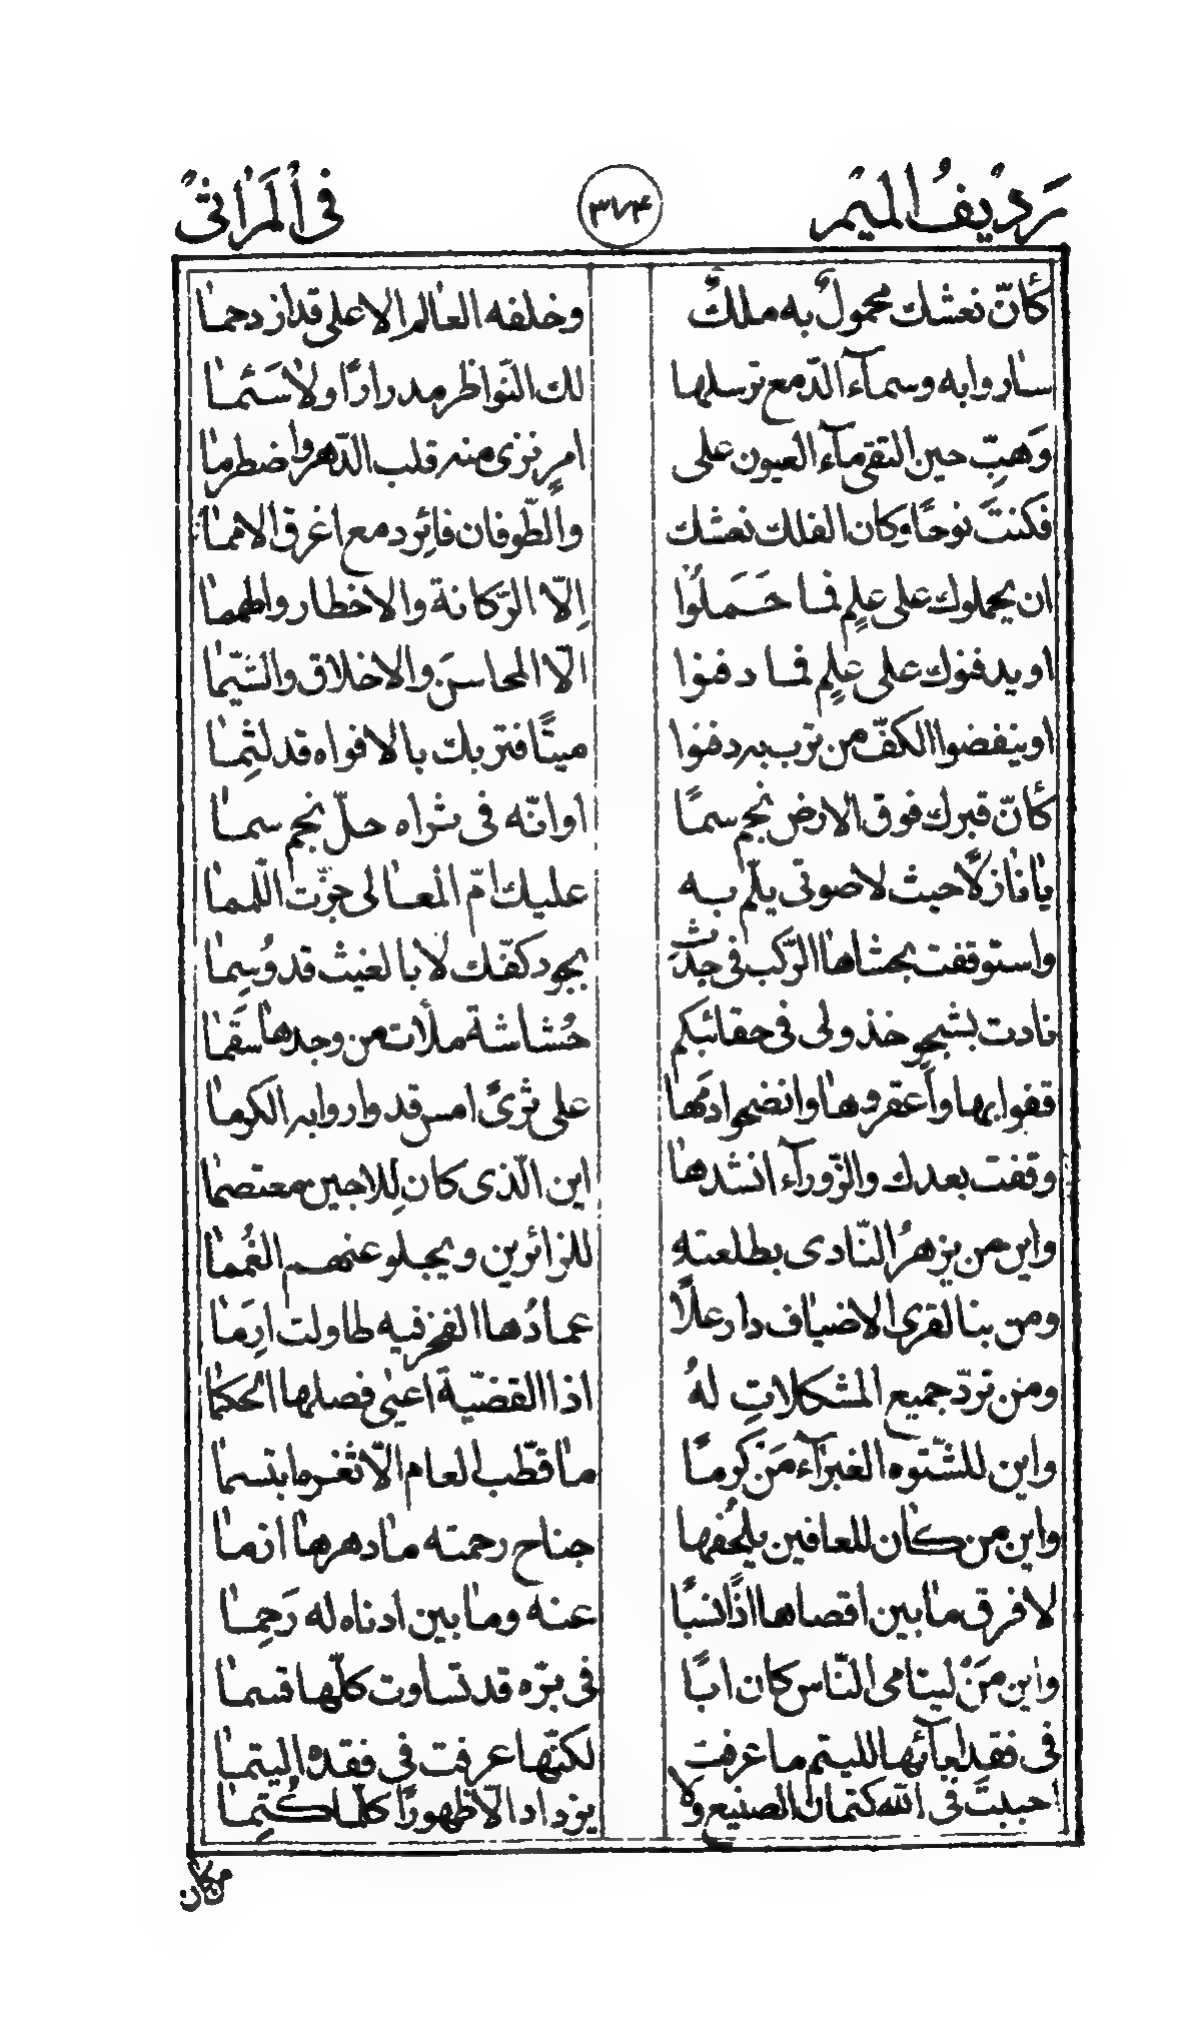 رَدْيفُ الميْم ٣٧۴ في ٱلمَراثى
كأنّ نعشك محمولٌ به ملكٌ وخلفه العالم الاعلى قد ازدحما
ساروا به وسمآء الدّمع ترسلها لك النّواظر مدرارًا ولا سَئما
وَهبِّ حين التقى مآء العيون على امرٍ نزى منه قلب الدّهر واضطرما
فكنتَ نوحًا وكان الفلك نعشك والطّوفان فائرد مع اغرق الامما
ان يحملوك على علمٍ فما حَمَلوُا اِلّا الرّكانة والاخطار والهمما
او يدفنوك على علمٍ فما دفنوا الّا المحاسنَ والاخلاق والشّيما
او ينفضوا الكفّ من ترب به دفنوا ميتًا فتربك بالافواه قد لثِما
كأنّ قبرك فوق الارض نجم سمًا او انّه في ثراه حلّ نجم سما
يا نازلًا حيث لا صوتى يلمّ به عليك امّ المعالى جزّت اللّمما
واستوقفت بحشاها الرّكب في جدثٍ بجود كفّك لا بالغيث قد وُسِما
نادت بشجو خذولى في حقائبكم حُشاشة ملأت من وجدها سقَما
قفوا بها وأعقروها وانضحوا دمَها على ثرىً امس قد واروا به الكرما
وقفت بعدك والزّورآء انشدها اين الّذى كان لِلاجين معتصما
واين من يزهرُ النّادى بطلعتهِ للزائرين ويجلو عنهم الغُمما
ومن بنا لقرى الاضياف دار علًا عمادُها الفخر فيه طاولت ارِمَا
ومن تردّ جميع المشكلاتِ لهُ اذا القضيّة اعيٰى فصلها الحكما
واين للشّتوه الغبرآء مَنْ كرمًا ما قطّب العام الّا ثغره ابتسما
واين من كان للعافين يلحُفها جناح رحمته ما دهرها ازما
لا فرق ما بين اقصاها اذًا نسبًا عنه وما بين ادناه له رَحِما
واين مَنْ ليتامى النّاس كان ابًا في برّه قد تساوت كلّها قسما
في فقد اٰبآئها لليتم ما عرفت لكنّها عرفت في فقدهِ اليتما
احببتَ في الله كتمان الصنيع ولا يزداد الّا ظهورًا كلّما كُتِما